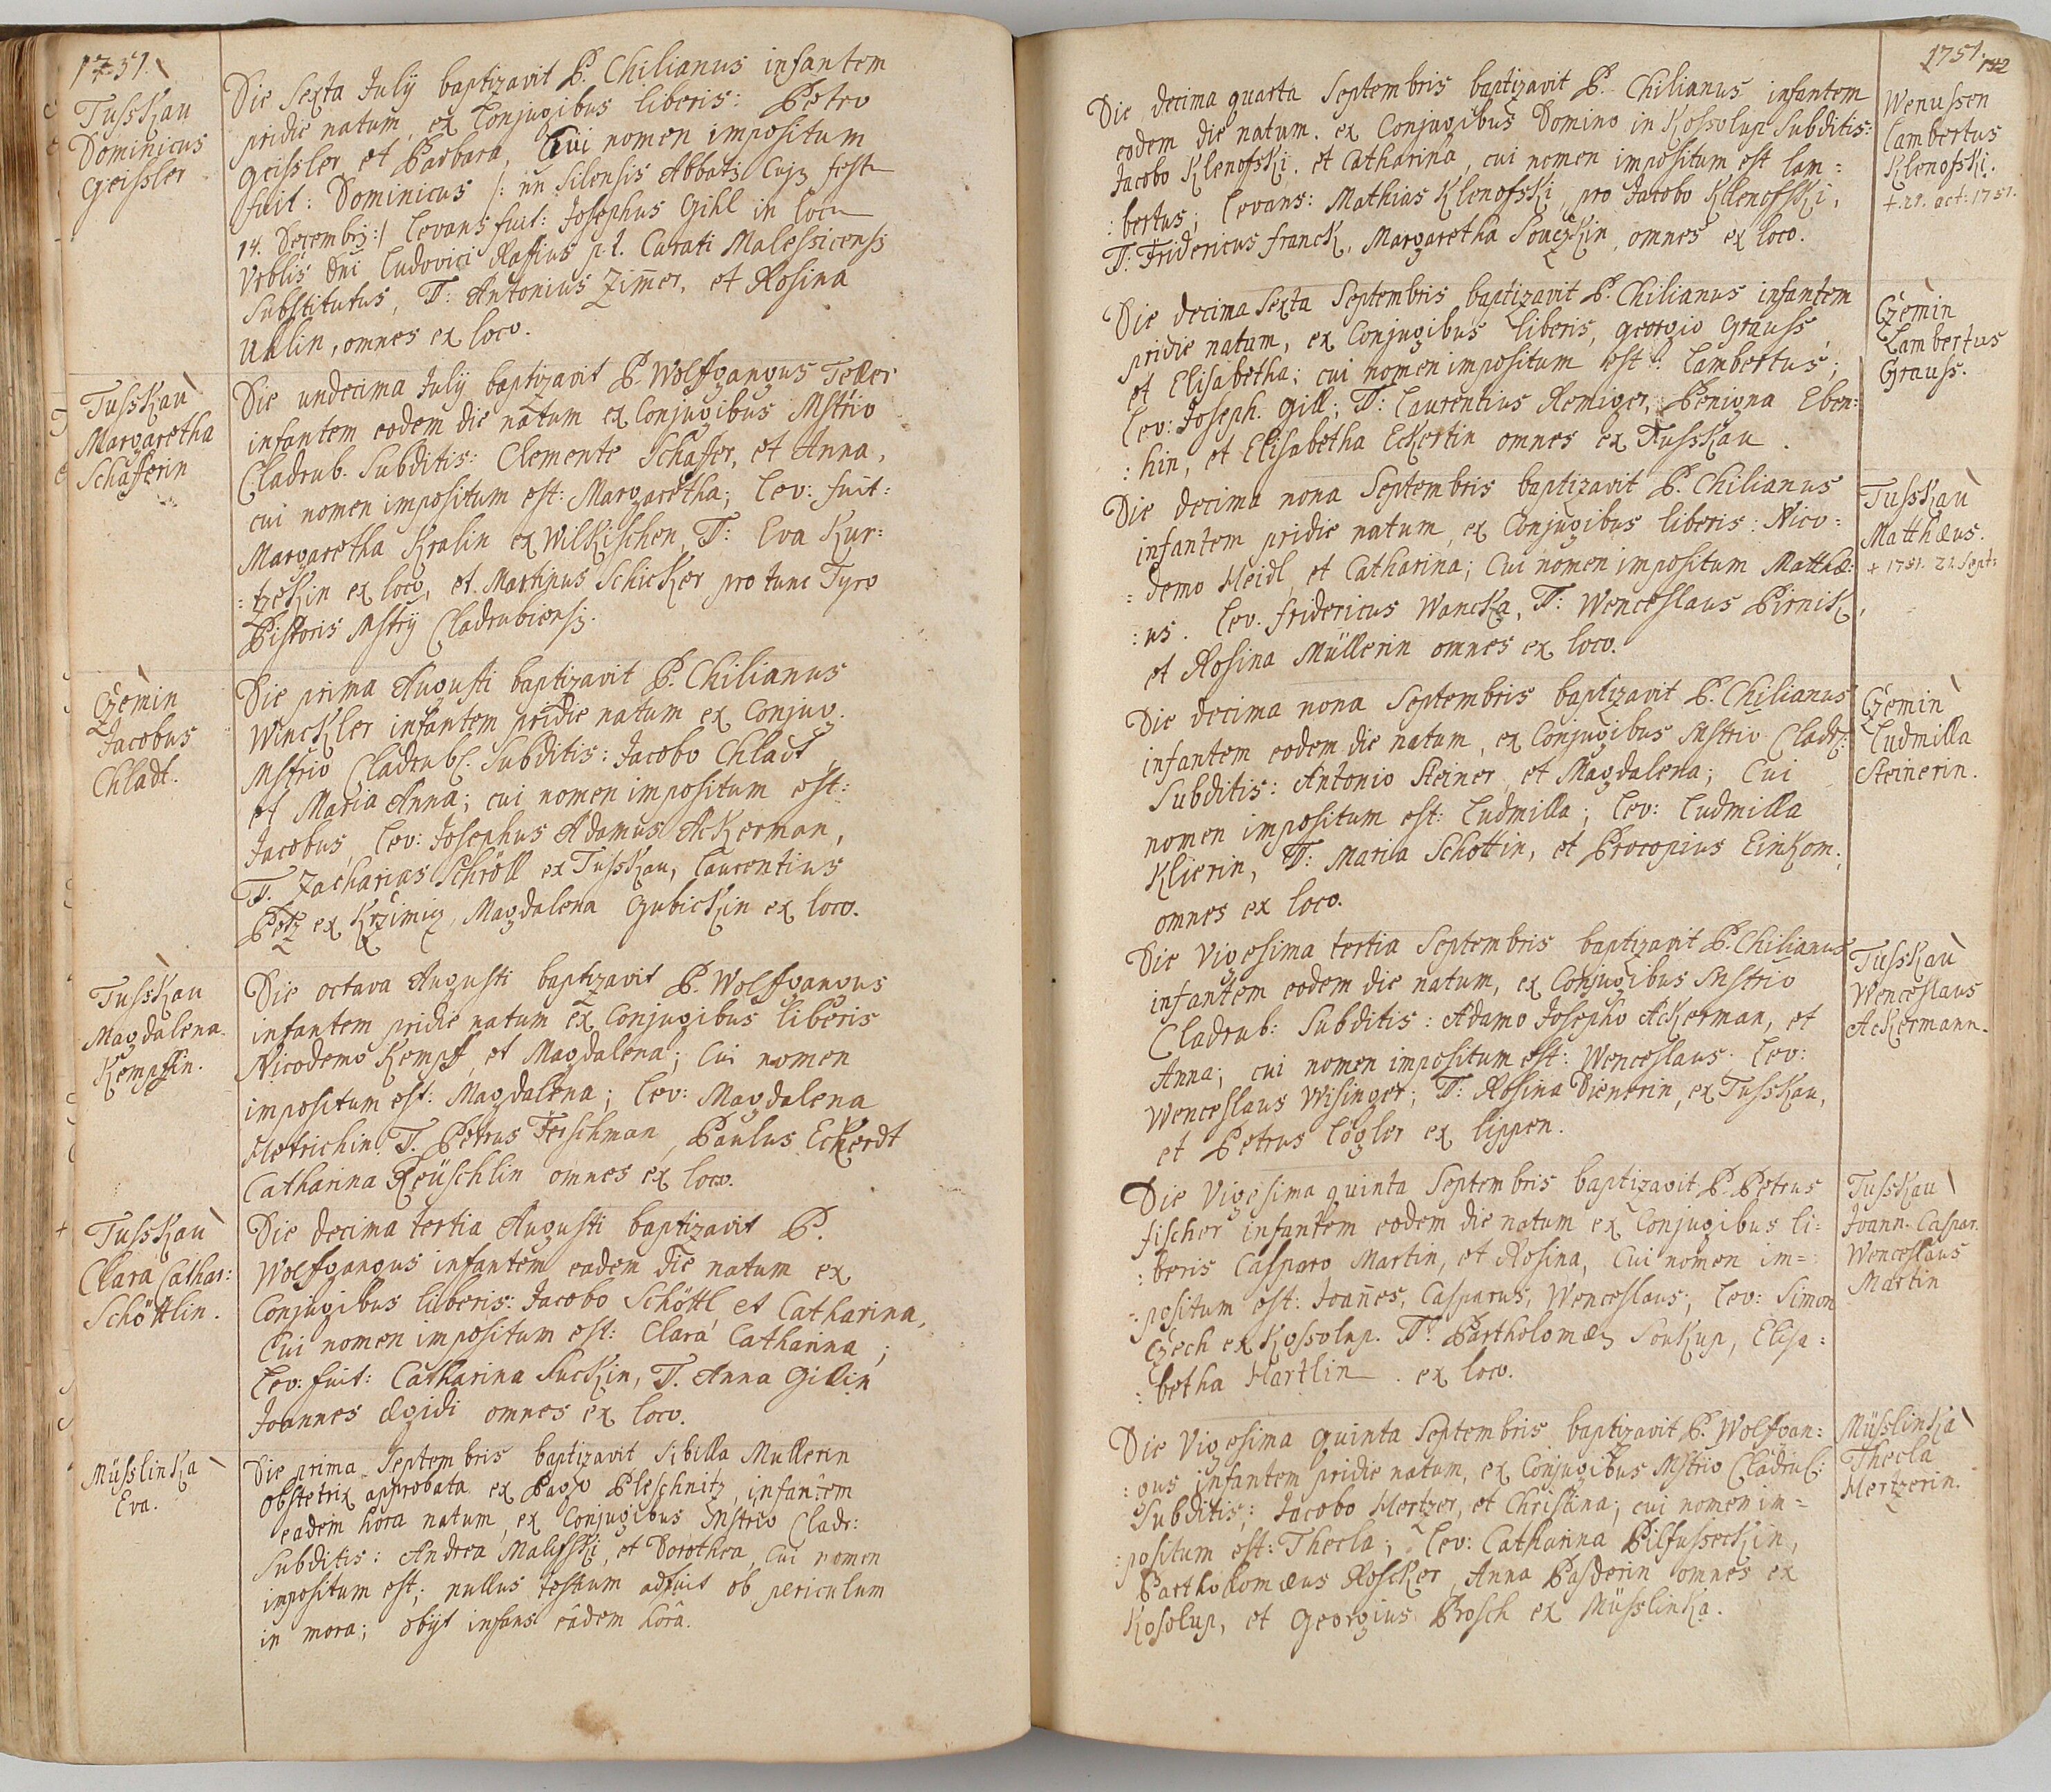 1751.
Tusskau
Dominicus
Geissler
Die Sexta July baptizavit P. Chilianus infantem
pridie natum, ex Conjugibus liberis: Petro
Geissler et Barbara, Cui nomen impositum
fuit: Dominicus /: nn Silensis Abbatis Cujus fest
14. Decembris :/ Levans fuit: Josephus Gihl in locu
Urblis Dni Ludovici Raffius p. t. Curati Malessicensis
Substitutus, T: Antonius Zimer, et Rosina
Ullin, omnes ex loco.
Tusskau
Margaretha
Schafferin
Die undecima July baptizavit P. Wolfgangus Teller
infantem eodem die natum ex Conjugibus Mstrio
Cladrub. Subditis: Clemente Schaffer, et Anna,
cui nomen impositum est: Margaretha; Lev: fuit:
Margaretha Kralin ex Wilkischen, T: Eva Kur:
:tzekin ex loco, et Martinus Schicker pro tunc Tyro
Pistoris Mstrij Cladrubiensis.
Czemin
Jacobus
Chladt.
Die prima Augusti baptizavit P. Chilianus
Winckler infantem pridie natum ex Conjug.
Mstrio Cladrub. Subditis: Jacobo Chladt
et Maria Anna; cui nomen impositum est:
Jacobus, Lev: Josephus Adamus Ackerman,
T. Zacharias Schröll ex Tusskau, Laurentius
Petz ex Krzimiz, Magdalena Gubickin ex loco.
Tusskau
Magdalena
Kempffin.
Die octava Augusti baptizavit P. Wolfgangus
infantem pridie natum ex Conjugibus liberis
Nicodemo Kempff, et Magdalena; Cui nomen
impositum est: Magdalena; Lev: Magdalena
Hetrichin, T. Petrus Ferschman, Paulus Eckerdt
Catharina Reüschlin omnes ex loco.
Tusskau
Clara Cathar:
Schöttlin.
Die decima tertia Augusti baptizavit P.
Wolfgangus infantem eadem die natum ex
Conjugibus liberis: Jacobo Schöttl, et Catharina,
Cui nomen impositum est: Clara Catharina;
Lev: fuit: Catharina Suckin, T. Anna Gillin
Joannes Ægidi omnes ex loco.
Müsslinka
Eva.
Die prima Septembris baptizavit Sibilla Mullerin
obstetrix approbata ex Pago Pleschnitz, infantem
eadem hora natum, ex Conjugibus Mstrio Cladr:
Subditis: Andrea Malesski, et Dorothea, Cui nomen
impositum est; nullus testium adfuit ob periculum
in mora; obijt infans eâdem horâ.
1751.
142
Die decima quarta Septembris baptizavit P. Chilianus infantem
eodem die natum. ex Conjugibus Domino in Kossolup Subditis:
Jacobo Klenofski, et Catharina, cui nomen impositum est Lam=
:bertus; Levans: Mathias Klenofski, pro Jacobo Klenofski,
T: Fridericus Franck, Margaretha Souczkin, omnes ex loco.
Wenussen
Lambertus
Klenofski.
+. 29. oct: 1751.
Die decima Sexta Septembris baptizavit P. Chilianus infantem
pridie natum, ex Conjugibus liberis, Georgio Grauss,
et Elisabetha; cui nomen impositum est: Lambertus;
Lev: Joseph. Gill; T: Laurentius Remiger, Benigna Eben:
:hin, et Elisabetha Eckertin omnes ex Tusskau.
Czemin
Lambertus
Grauss.
Die decima nona Septembris baptizavit P. Chilianus
infantem pridie natum, ex Conjugibus liberis: Nico=
=demo Heidl, et Catharina; Cui nomen impositum Matthæ:
:us. Lev. Fridericus Wancka, T: Wenceslaus Pirnik,
et Rosina Müllerin omnes ex loco.
Tusskau
Matthæus.
+ 1751. 21. Sept:
Die decima nona Septembris baptizavit P. Chilianus
infantem eodem die natum, ex Conjugibus Mstrio Cladr:
Subditis: Antonio Steiner, et Magdalena; Cui
nomen impositum est: Ludmilla; Lev: Ludmilla
Klierin, T: Maria Schottin, et Procopius Einkom,
omnes ex loco.
Czemin
Ludmilla
Steinerin.
Die Vigesima tertia Septembris baptizavit P. Chilianus
infantem eodem die natum, ex Conjugibus Mstrio
Cladrub: Subditis: Adamo Josepho Ackerman, et
Anna; cui nomen impositum est: Wenceslaus. Lev:
Wenceslaus Wisinger; T: Rosina Dienerin, ex Tusskau,
et Petrus Logler ex Lippen.
Tusskau
Wenceslaus
Ackermann.
Die Vigesima quinta Septembris baptizavit P. Petrus
Fischer infantem eodem die natum ex Conjugibus li=
:beris Casparo Martin, et Rosina, Cui nomen im=
=positum est: Joañes, Casparus, Wenceslaus; Lev: Simon
Czech ex Kossolup. T: Bartholomæus Soukup, Elisa=
:betha Hartlin. ex loco.
Tusskau
Joann. Caspar.
Wenceslaus
Martin
Die Vigesima Quinta Septembris baptizavit P. Wolfgan:
:gus infantem pridie natum, ex Conjugibus Mstrio Cladrub:
Subditis: Jacobo Hertzer, et Christina; cui nomen im=
:positum est: Thecla; Lev: Catharina Pilfusseckin,
Bartholomæus Roscker, Anna Basderin omnes ex
Kosolup, et Georgius Brosch ex Müsslinka.
Müsslinka
Thecla
Hertzerin.